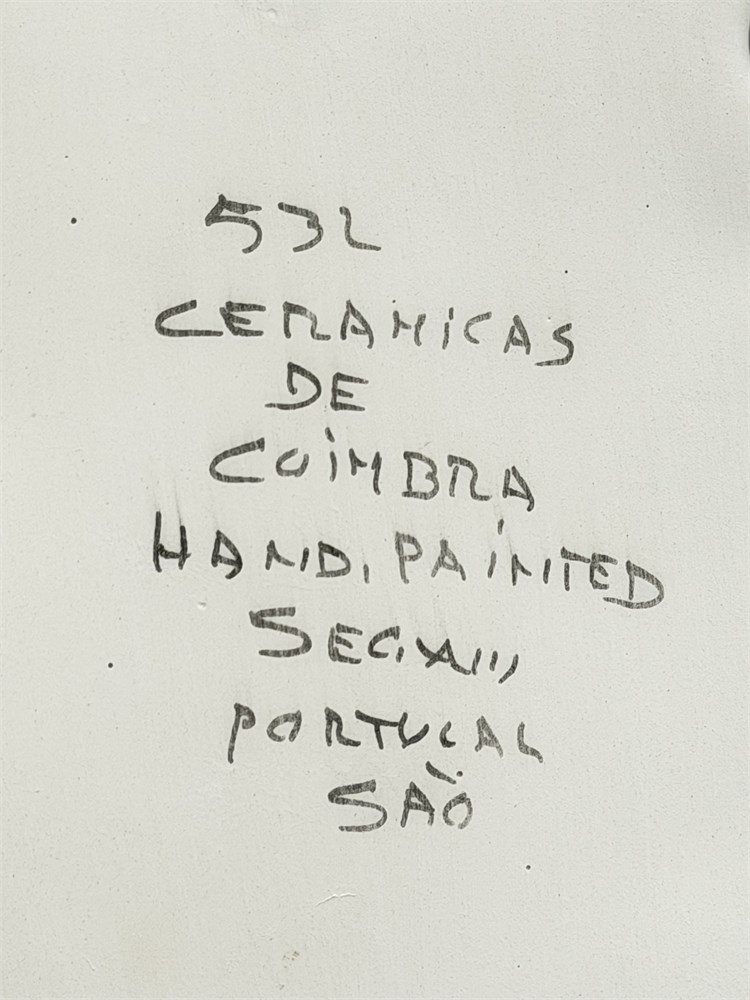 532
CERAMICAS
DE
COIMBRA
HAND, PAINTED
PORTUGAL
SÃO